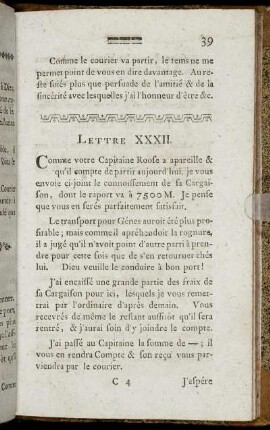 39
Comme le courier va partir, le tems ne me
permet point de vous en dire davantage. Au re-
ste soiés plus que persuade de l'amitié & de la
sincérité avec lesquelles j'ai l'honneur d'être &c.
LETTRE XXXII.
Comme votre Capitaine Roose a apareille &
qu'il compte de partir aujourd'hui, je vous
envoie ci-joint le connoissement de sa Cargai-
son, dont le raport va à 7500 M. Je pense
que vous en serés parfaitement satisfait.
Le transport pour Génes auroit été plus pro-
fitable; mais comme il apréhendoit la rognure,
il a jugé qu'il n'avoit point d'autre parti à pren-
dre pour cette fois que de s'en retourner chés
lui. Dieu veuille le conduire à bon port!
J'ai encaissé une grande partie des fraix de
sa Cargaison pour ici, lesquels je vous remet-
trai par l'ordinaire d'après demain. Vous
recevrés de même le restant aussitôt qu'il sera
rentré, & j'aurai soin d'y joindre le compte.
J'ai passé au Capitaine la somme de —; il
vous en rendra Compte & son reçû vous par-
viendra par le courier.
C 4 J'espére